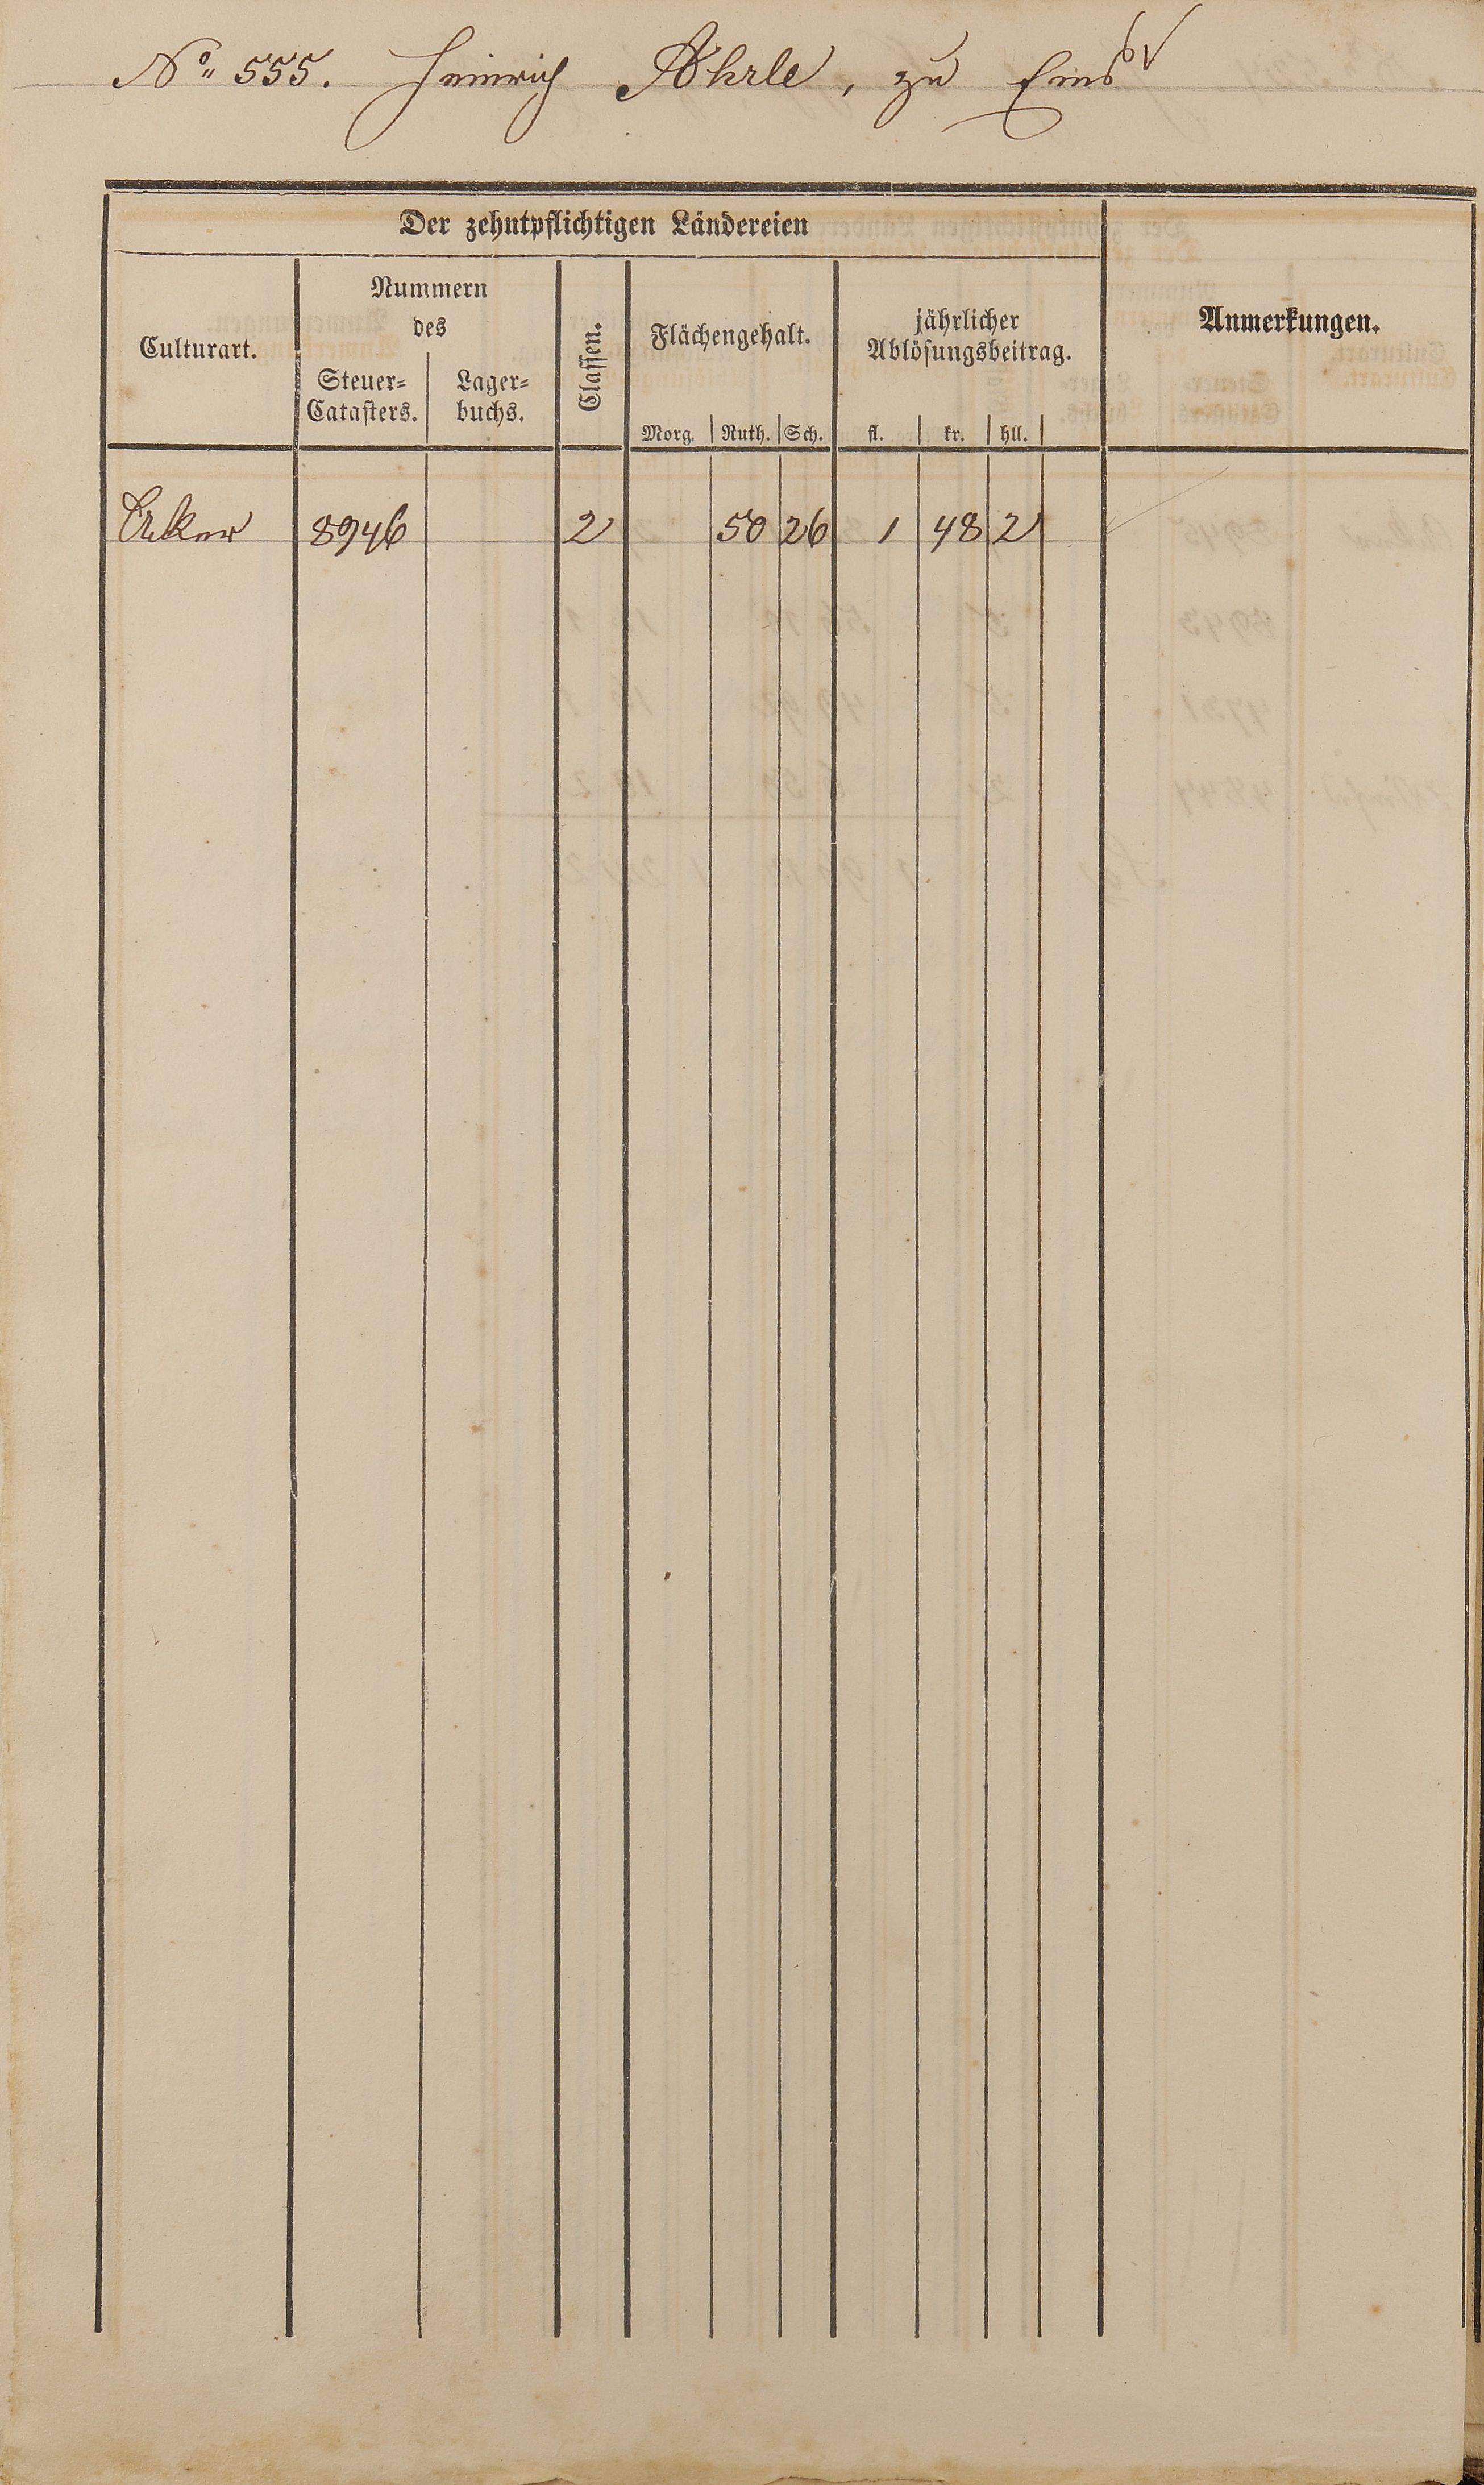 No. 555. Heinrich Röhrle, zu Ems
Der zehntpflichtigen Ländereien
Culturart.
Nummern
des
Steuer=
Catasters.
Lager=
buchs.
Classen.
Flächengehalt.
Morg. Ruth. Sch.
jährlicher
Ablösungsbeitrag.
fl. kr. hll.
Anmerkungen.
Acker 8946 2 50 26 1 48 2